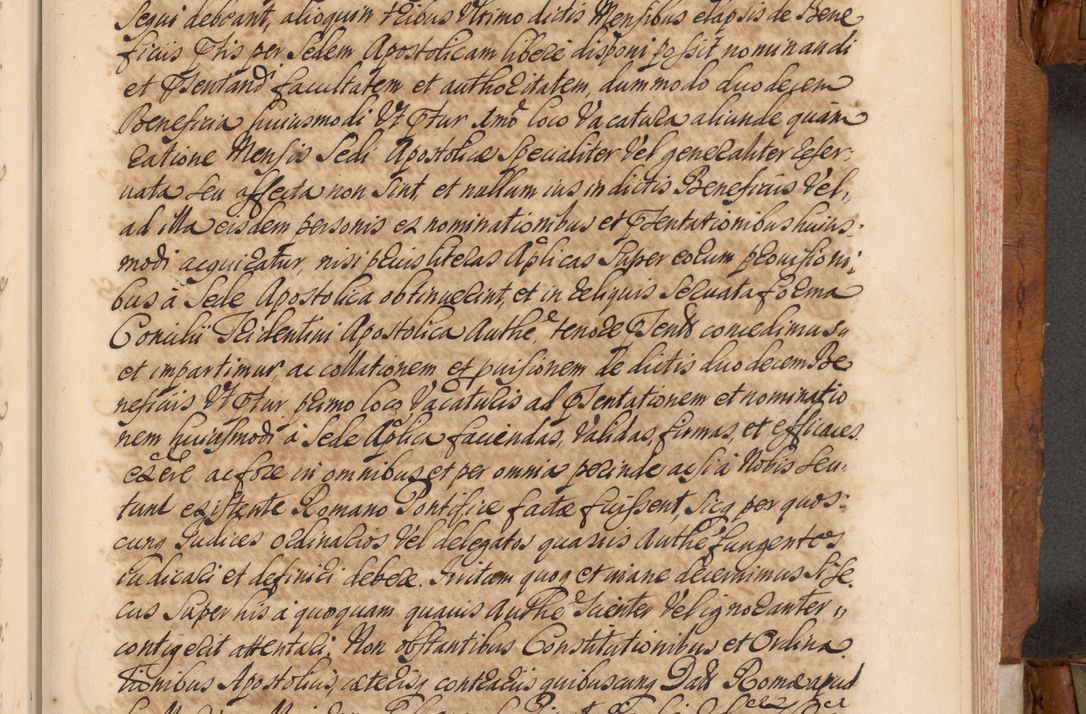 Sequi debeant, alioquin tribus ultimo dictis Mensibus elapsis de Bene
ficiis Ptis per Sedem Apostolicam libere disponi possit nominandi
et Pntandi facultatem et authoritatem, dummodo duodecem
Beneficia huiusmodi Ut Ptur Imo loco Vacatura aliunde quam
ratione Mensis Sedi Apostolicæ Specialiter Vel generaliter reser-
uata seu affecta non Sint, et nullum ius in dictis Beneficiis Vel,
ad illa eisdem personis ex nominationibus et Pntationibus huius-
modi acquiratur, nisi prius literas Aplicas super eorum prouisioni,
bus à Sede Apostolica obtinuerint, et in reliquis Seruata forma
Concilii Tridentini Apostolica Authe, tenore Pntiũ concedimus,
et impartimur ac collationem et prouisionem de dictis duodecem Be
neficiis Ut Ptur primo loco Vacaturis ad Pntationem et nominatio
nem huiusmodi à Sede Aplica faciendas, Validas, firmas, et efficaces
exere ac fore in omnibus et per omnia perinde ac si à Nobis seu
tunc existente Romano Pontifice factæ fuissent, Sicq per quos-
cunq Iudices ordinarios Vel delegatos quauis Authe fungentes
iudicari et definiri debere. Irritum quoq et inane decernimus Si se
cus Super his à quoquam quauis Authe Scienter Vel ignoranter
contigerit attentari. Non obstantibus Constitutionibus et Ordina
tionibus Apostolicis, cæterisq contrariis quibuscunq Dat Romæ apud